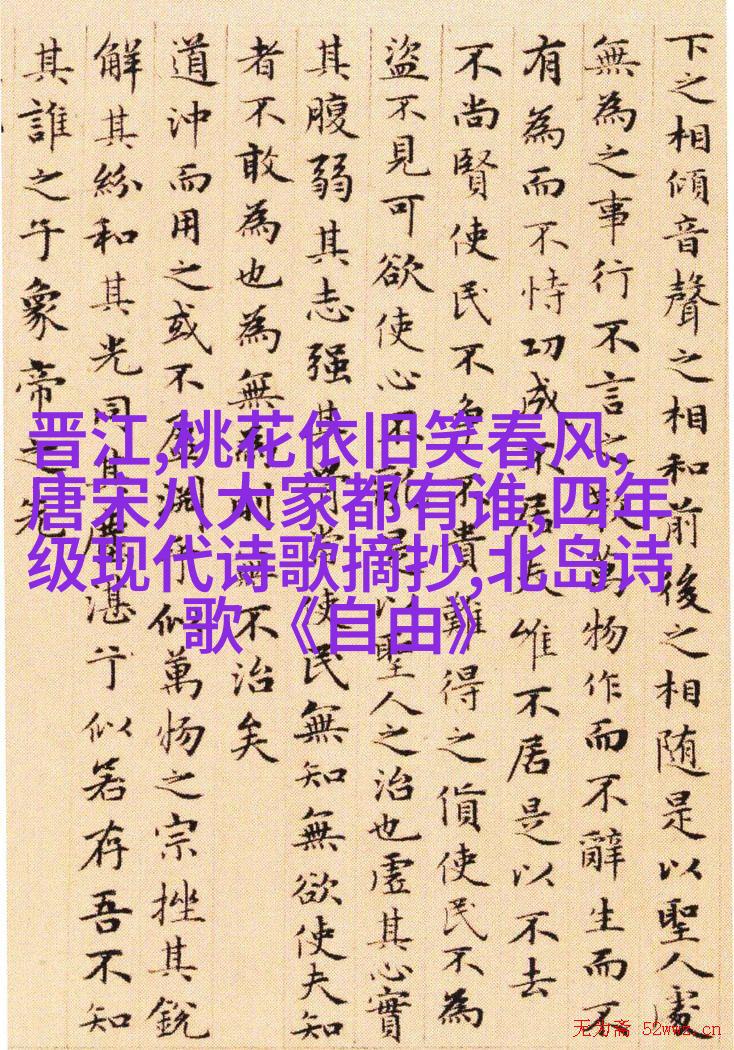 下之相傾音聲之相和前後之相随是以聖人處
無為之事行不言之教萬物作而不辭生而不
有為而不恃功成不居夫惟不居是以不去
不尚賢使民不爭不貴難得之貨使民不為
盜不見可欲使心不亂是以聖人之治也虛其心實
其腹弱其志强其骨常使民無知無欲使夫知
者不敢為也為無為則無不治矣
道沖而用之或不盈淵乎似萬物之宗挫其銳
解其紛和其光同其塵湛兮似若存吾不知
其誰之子象帝之先
晋江,桃花依旧笑春风,
唐宋八大家都有谁,四年
级现代诗歌摘抄,北岛诗
歌 《自由》
无为斋 52wwz.cn